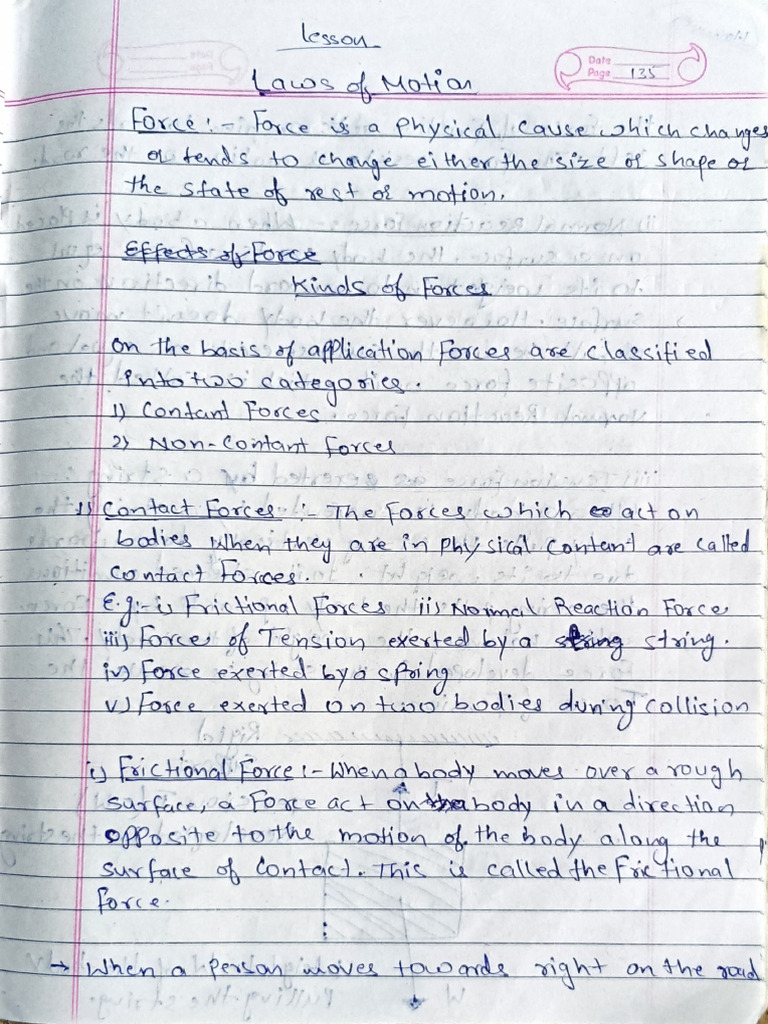 Lesson
Date
Page 135
Laws of Motion
Force :- Force is a physical cause which changes
or tends to change either the size or shape or
the state of rest or motion.
Effects of Force
Kinds of Forces
On the basis of application Forces are classified
into two categories.
1) Contant Forces
2) Non-Contant Forces
1) Contact Forces :- The Forces which act on
bodies when they are in physical contant are called
contact Forces.
E.g:- i) Frictional Forces ii) Normal Reaction Force
iii) Force of Tension exerted by a string.
iv) Force exerted by a spring
v) Force exerted on two bodies during collision
i) Frictional Force :- When a body moves over a rough
surface, a Force act on a body in a direction
opposite to the motion of the body along the
surface of contact. This is called the Frictional
Force.
→ When a person moves towards right on the road